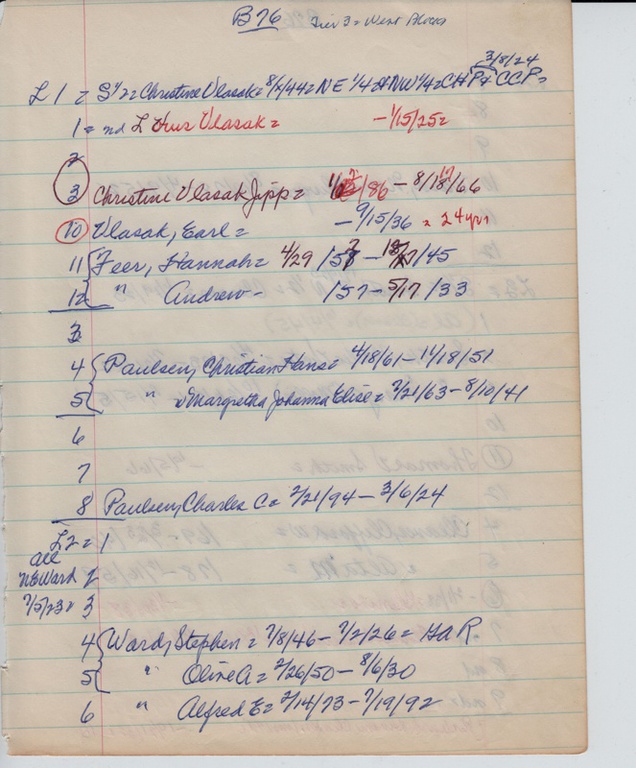 B76 Tier 3 = West Blocks
3/8/24
L 1 = S½ = Christine Vlasak = 8/ /44 = NE ¼ + NW ¼ = CH P + CCP =
1 = nd L Vlasak = - 1/15/25 =
2
3 Christine Vlasak Jipp = /86 - 8/18/66
10 Vlasak, Earl = - 9/15/36 = 24 yrs
11 Feer, Hannah = 4/29/57 - /45
12 " Andrew - /57 - 5/17/33
3
4 Paulsen, Christian Hans = 4/18/61 - 11/18/51
5 " Margretha Johanna Elise = 2/21/63 - 8/10/41
6
7
8 Paulsen, Charles C = 2/21/94 - 3/6/24
L 2 = 1
all
NE Ward 2
7/5/23 = 3
4 Ward, Stephen = 7/8/46 - 7/2/26 = GAR.
5 " Olive A = 2/26/50 - 8/6/30
6 " Alfred E = 2/14/73 - 7/19/92